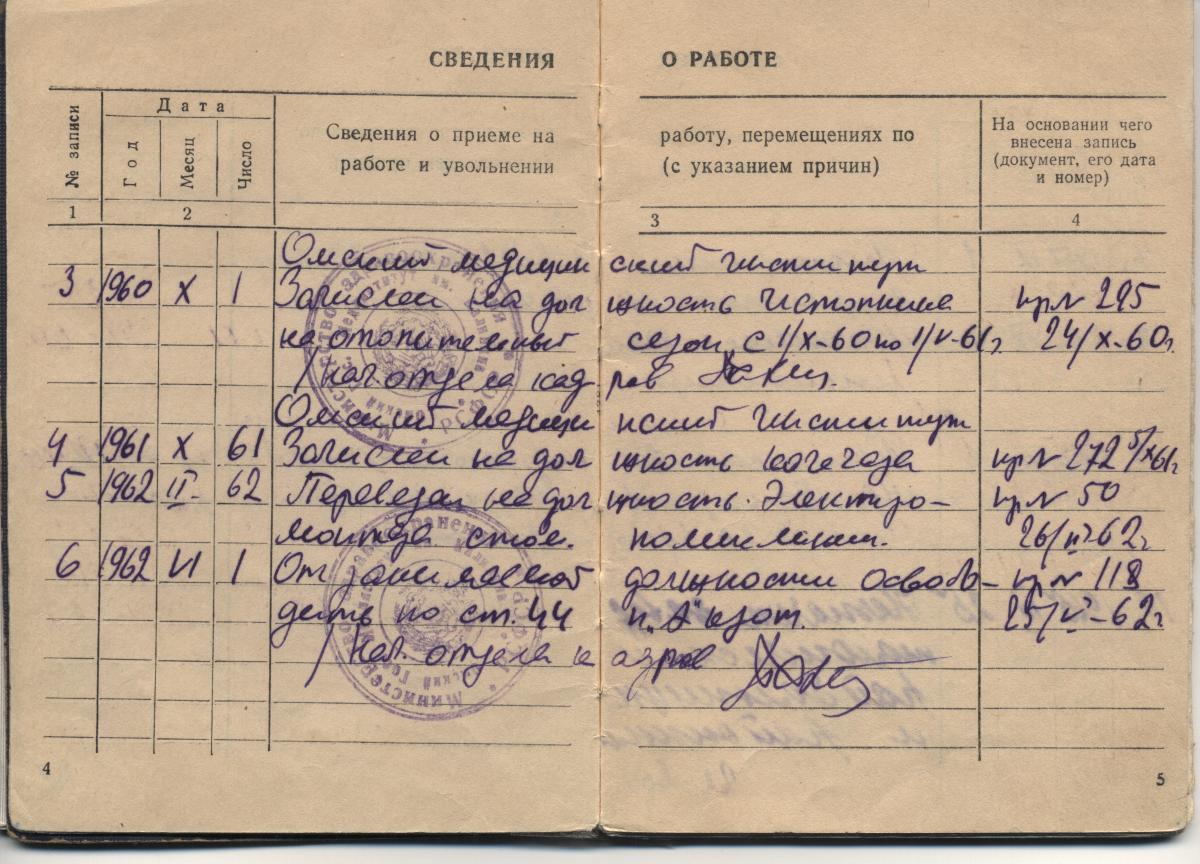 СВЕДЕНИЯ О РАБОТЕ
№ записи
Дата
Год
Месяц
Число
Сведения о приеме на работу, перемещениях по
работе и увольнении (с указанием причин)
На основании чего
внесена запись
(документ, его дата
и номер)
1 2 3 4
Омский медицинский институт
3 1960 X 1 Зачислен на должность истопника пр. № 295
на отопительный сезон с 1/X-60 по 1/V-61г. 24/X-60г.
Нач. отдела кадров
Омский медицинский институт
4 1961 X 61 Зачислен на должность пр № 272 5/X61г
5 1962 II 62 Переведен на должность электро- пр № 50
монтера 26/II-62г
6 1962 VI 1 От занимаемой должности освобо- пр № 118
дить по ст. 44 п. "А" кзот. 25/V-62г
Нач. отдела кадров
4 5